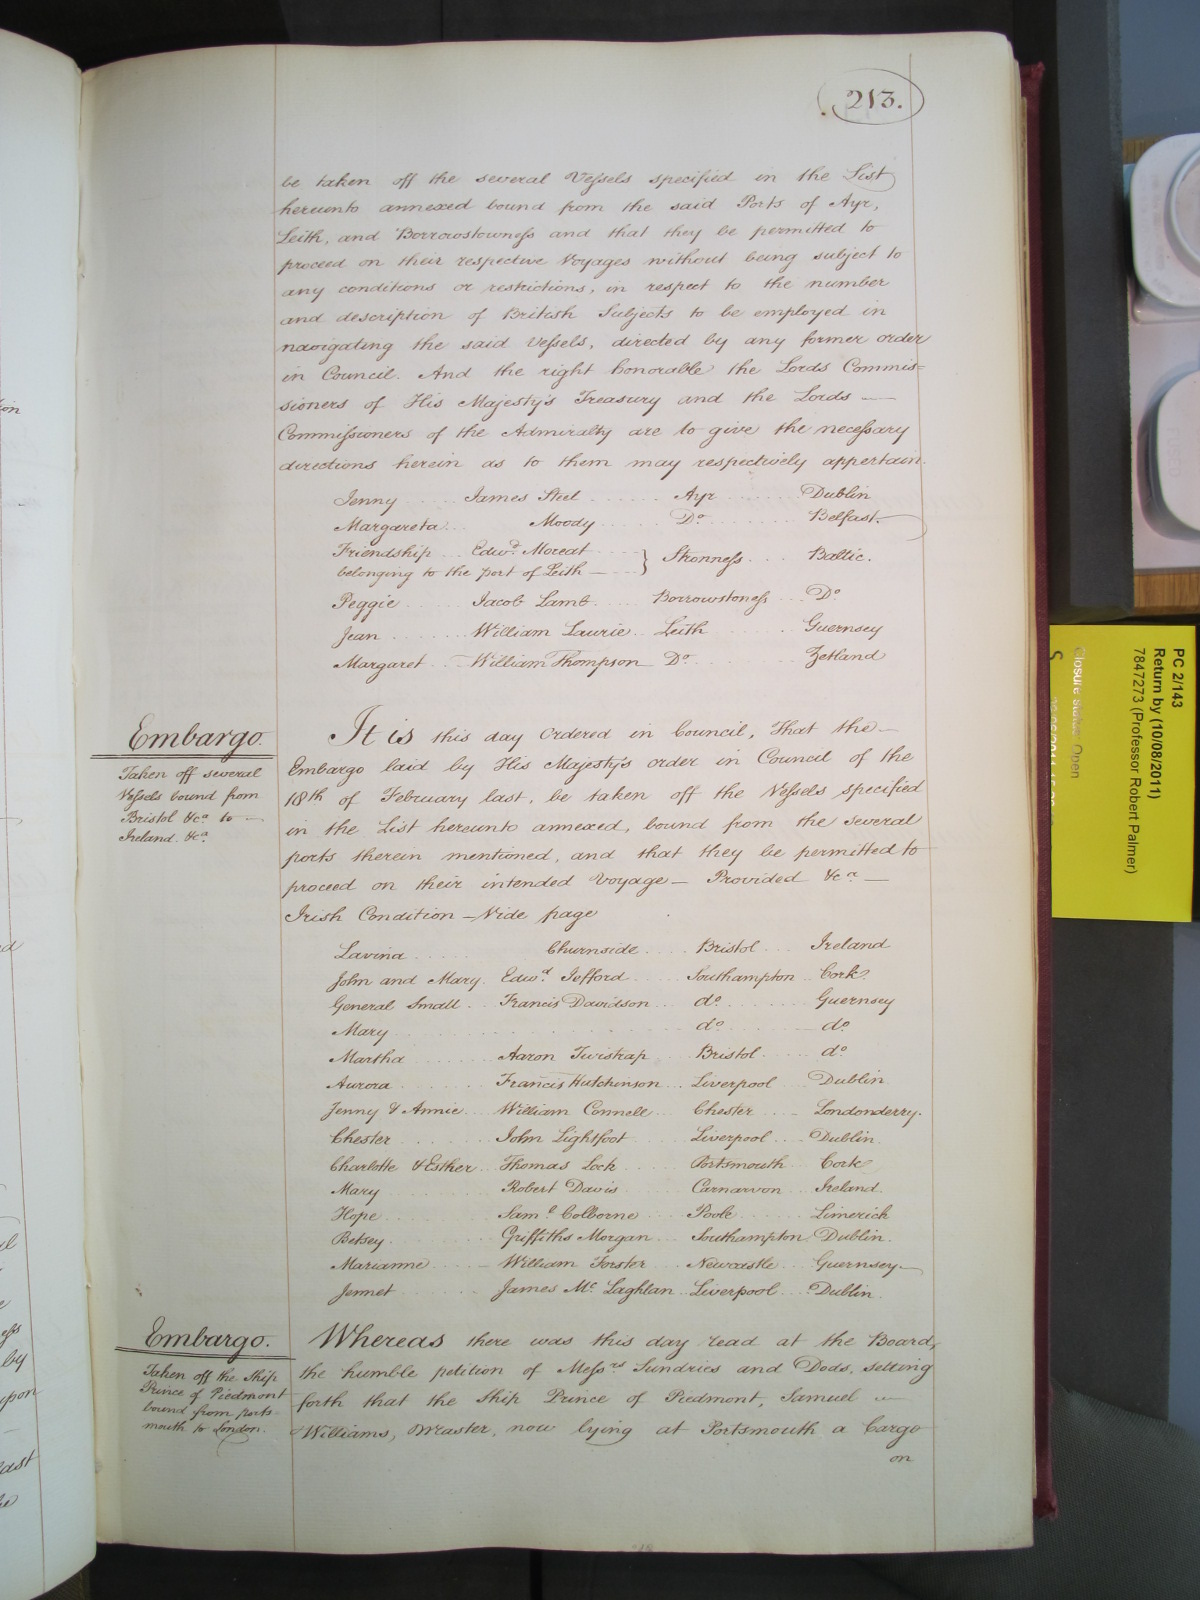 213.
be taken off the several Vessels specified in the List
hereunto annexed bound from the said Ports of Ayr,
Leith, and Borrowstowness and that they be permitted to
proceed on their respective Voyages without being subject to
any conditions or restrictions, in respect to the number
and description of British Subjects to be employed in
navigating the said Vessels, directed by any former order
in Council. And the right honorable the Lords Commis=
sioners of His Majesty's Treasury and the Lords —
Commissioners of the Admiralty are to give the necessary
directions herein as to them may respectively appertain.
Jenny James Steel Ayr Dublin
Margareta Moody Do Belfast.
Friendship Edwd. Moreat } Stronness Baltic.
belonging to the port of Leith —
Peggie Jacob Lamb Borrowstoness Do
Jean William Laurie Leith Guernsey
Margaret William Thompson Do Zetland
Embargo.
Taken off several
Vessels bound from
Bristol &ca to —
Ireland. &ca
It is this day Ordered in Council, That the —
Embargo laid by His Majesty's order in Council of the
18th of February last, be taken off the Vessels specified
in the List hereunto annexed, bound from the several
ports therein mentioned, and that they be permitted to
proceed on their intended Voyage — Provided &ca —
Irish Condition — Vide page
Lavina Churnside Bristol Ireland
John and Mary Edwd. Jefford Southampton Cork
General Small Francis Davidson do Guernsey
Mary do do
Martha Aaron Twistrap Bristol do
Aurora Francis Hutchinson Liverpool Dublin
Jenny & Annie William Connell Chester Londonderry.
Chester John Lightfoot Liverpool Dublin
Charlotte & Esther Thomas Lock Portsmouth Cork
Mary Robert Davis Carnarvon Ireland.
Hope Saml Colborne Poole Limerick
Betsey Griffiths Morgan Southampton Dublin.
Marianne William Forster Newcastle Guernsey
Jennet James Mc Laghlan Liverpool Dublin
Embargo.
Taken off the Ship
Prince of Piedmont
bound from ports=
mouth to London.
Whereas there was this day read at the Board,
the humble petition of Messrs Sundries and Dods, setting
forth that the Ship Prince of Piedmont, Samuel —
Williams, Master, now lying at Portsmouth a Cargo
on
PC 2/143
Return by (10/08/2011)
7847273 (Professor Robert Palmer)
Closure status: Open
S